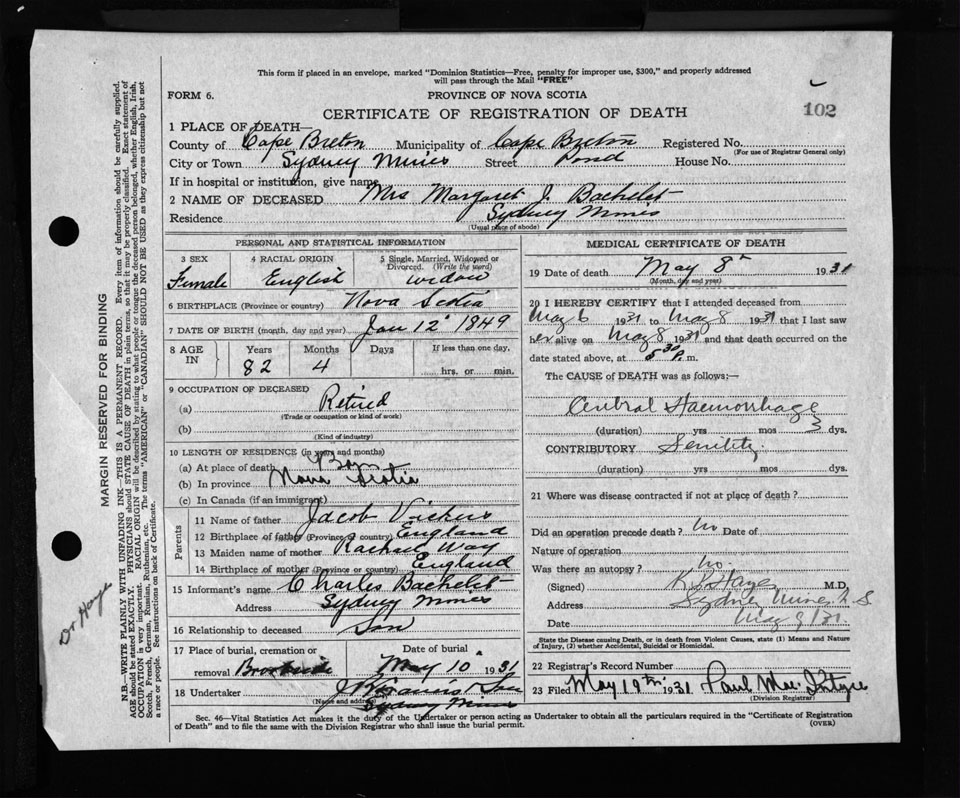 This form if placed in an envelope, marked "Dominion Statistics—Free, penalty for improper use, $300," and properly addressed
will pass through the Mail "FREE"
FORM 6.
PROVINCE OF NOVA SCOTIA
102
CERTIFICATE OF REGISTRATION OF DEATH
1 PLACE OF DEATH—
County of Cape Breton Municipality of Cape Breton Registered No.
(For use of Registrar General only)
City or Town Sydney Mines Street Pond House No.
If in hospital or institution, give name
2 NAME OF DECEASED Mrs Margaret J. Bachelet
Residence Sydney Mines
(Usual place of abode)
PERSONAL AND STATISTICAL INFORMATION
3 SEX 4 RACIAL ORIGIN 5 Single, Married, Widowed or Divorced. (Write the word)
Female English widow
6 BIRTHPLACE (Province or country) Nova Scotia
7 DATE OF BIRTH (month, day and year) Jan 12" 1849
8 AGE IN Years Months Days If less than one day.
82 4 hrs. or min.
9 OCCUPATION OF DECEASED
(a) Retired
(Trade or occupation or kind of work)
(b)
(Kind of industry)
10 LENGTH OF RESIDENCE (in years and months)
(a) At place of death
(b) In province Nova Scotia
(c) In Canada (if an immigrant)
Parents
11 Name of father Jacob Vickers
12 Birthplace of father (Province or country) England
13 Maiden name of mother Rachael Way
14 Birthplace of mother (Province or country) England
15 Informant's name Charles Bachelet
Address Sydney Mines
16 Relationship to deceased Son
17 Place of burial, cremation or removal Date of burial
May 10" 1931
18 Undertaker & Son
(Name and address) Sydney Mines
MEDICAL CERTIFICATE OF DEATH
19 Date of death May 8th 1931
(Month, day and year)
20 I HEREBY CERTIFY that I attended deceased from
May 6 1931 to May 8 1931 that I last saw
her alive on May 8 1931 and that death occurred on the
date stated above, at 5 30 P.m.
The CAUSE of DEATH was as follows:—
Cerebral Haemorrhage
(duration) yrs mos 3 dys.
CONTRIBUTORY Senility
(duration) yrs mos dys.
21 Where was disease contracted if not at place of death?
Did an operation precede death? No Date of
Nature of operation
Was there an autopsy? No.
(Signed) M.D.
Address Sydney Mines N.S.
Date May 9/31
State the Disease causing Death, or in death from Violent Causes, state (1) Means and Nature
of Injury, (2) whether Accidental, Suicidal or Homicidal.
22 Registrar's Record Number
23 Filed May 19th 1931 Paul
(Division Registrar)
Sec. 46—Vital Statistics Act makes it the duty of the Undertaker or person acting as Undertaker to obtain all the particulars required in the "Certificate of Registration
of Death" and to file the same with the Division Registrar who shall issue the burial permit.
(OVER)
MARGIN RESERVED FOR BINDING
N.B.—WRITE PLAINLY WITH UNFADING INK—THIS IS A PERMANENT RECORD. Every item of information should be carefully supplied.
AGE should be stated EXACTLY. PHYSICIANS should STATE CAUSE OF DEATH in plain terms, so that it may be properly classified. Exact statement of
OCCUPATION is very important. RACIAL ORIGIN will be described by stating to what people or tongue the deceased person belonged, whether English, Irish,
Scotch, French, German, Russian, Ruthenian, etc. The terms "AMERICAN" or "CANADIAN" SHOULD NOT BE USED as they express citizenship but not
a race or people. See instructions on back of Certificate.